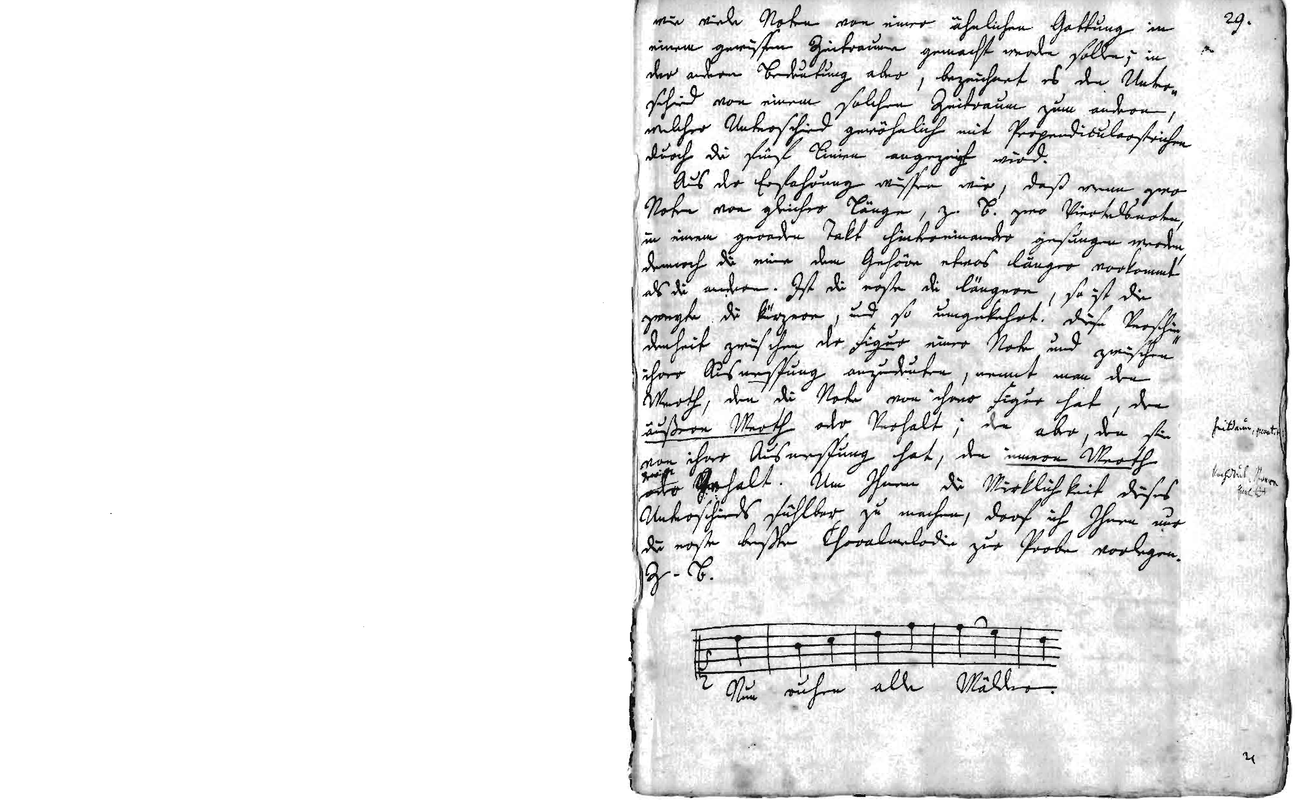 29.
wie viele Noten von einer ähnlichen Gattung in
einem gewissen Zeitraume gemacht werde sollen; in
der andern Bedeutung aber, bezeichnet es den Unter„
schied von einem solchen Zeitraum zum andern,
welcher Unterschied gewöhnlich mit Perpendiculerstrichen
durch die fünf Linien angezeigt wird.
Aus der Erfahrung wissen wir, daß wenn zwo
Noten von gleicher Länge, z. B. zwo Viertelsnoten,
in einem geraden Takt hintereinander gesungen werden,
dennoch die eine dem Gehöre etwas länger vorkommt
als die andere. Ist die erste die längere, so ist die
zweyte die kürzere, und so umgekehrt. Diese Verschie„
denheit zwischen der Figur einer Note und zwischen
ihrer Ausmessung anzudeuten, nennt man den
Werth, den die Note von ihrer Figur hat, den
äußern Werth oder Verhalt; den aber, den sie
von ihrer Ausmessung hat, den innern Werth
oder Gehalt. Um Ihnen die Wirklichkeit dieses
Unterschieds fühlbar zu machen, darf ich Ihnen nur
die erste beste Choralmelodie zur Probe vorlegen.
Z. B.
Nun ruhen alle Wälder.